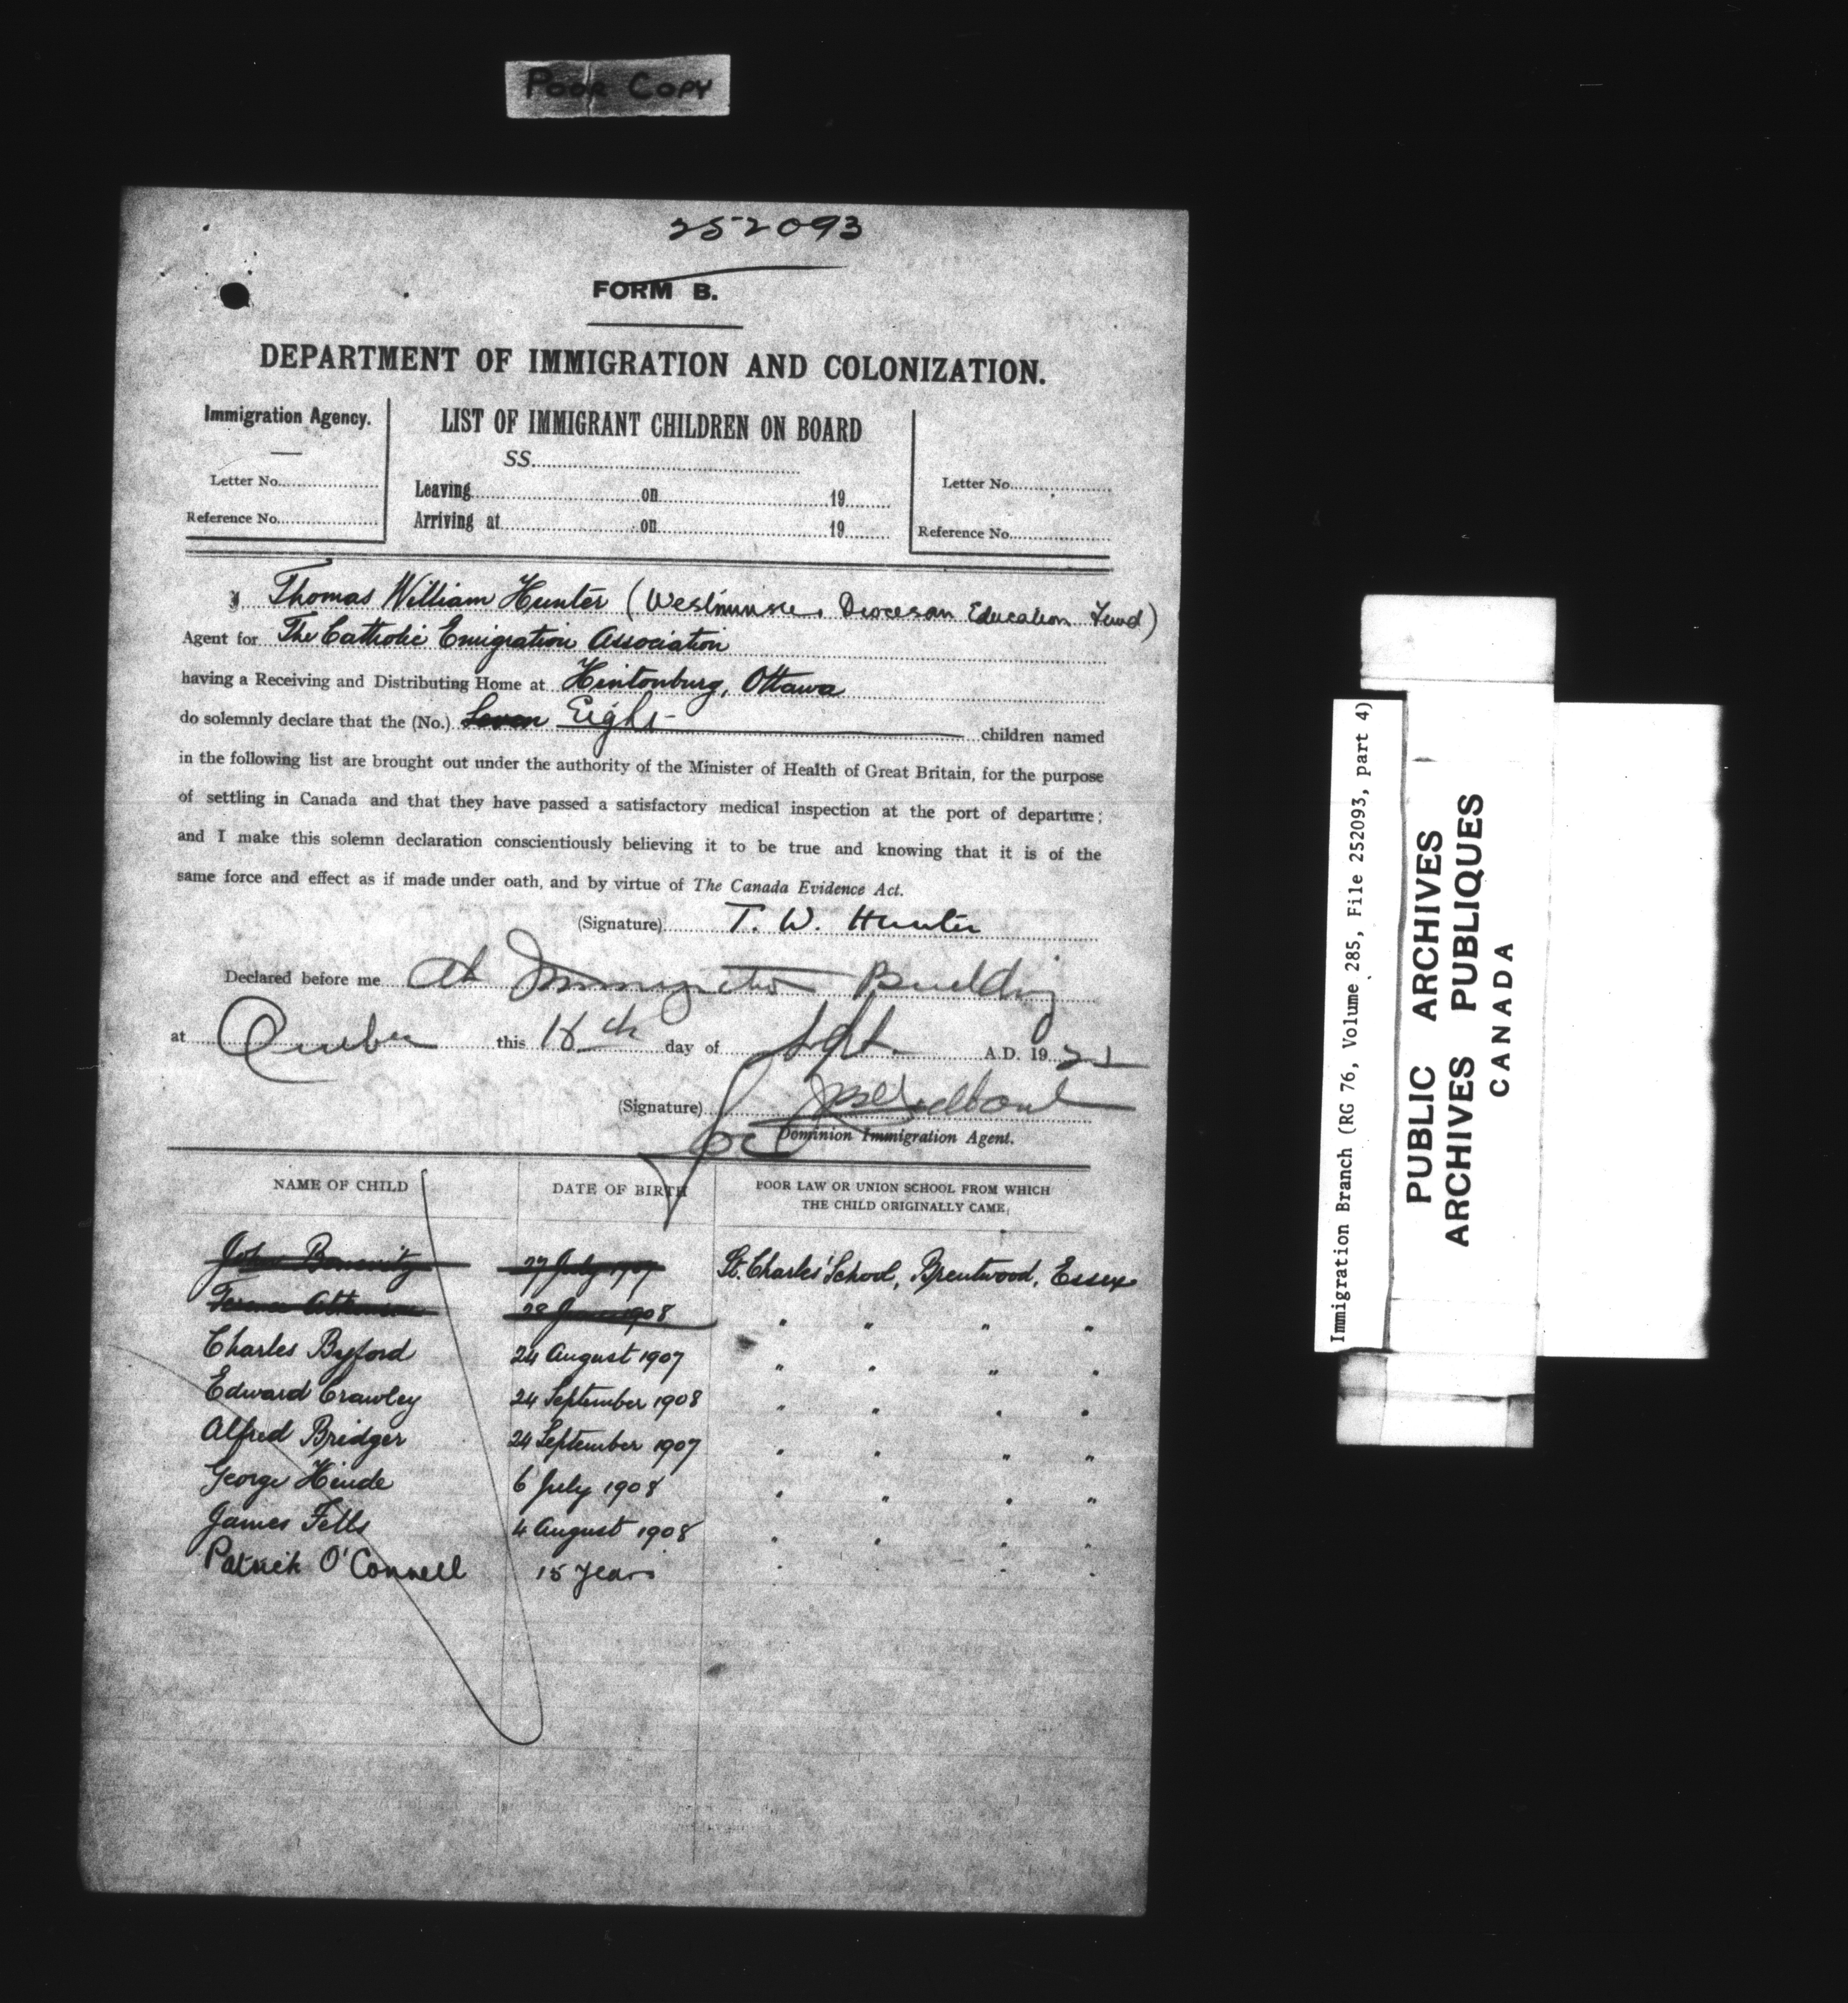 POOR COPY
252093
FORM B.
DEPARTMENT OF IMMIGRATION AND COLONIZATION.
Immigration Agency.
Letter No.
Reference No.
LIST OF IMMIGRANT CHILDREN ON BOARD
SS.
Leaving on 19
Arriving at on 19
Letter No.
Reference No.
I Thomas William Hunter (Westminster Diocesan Education Fund)
Agent for The Catholic Emigration Association
having a Receiving and Distributing Home at Hintonburg, Ottawa
do solemnly declare that the (No.) Seven Eight children named
in the following list are brought out under the authority of the Minister of Health of Great Britain, for the purpose
of settling in Canada and that they have passed a satisfactory medical inspection at the port of departure;
and I make this solemn declaration conscientiously believing it to be true and knowing that it is of the
same force and effect as if made under oath, and by virtue of The Canada Evidence Act.
(Signature) T. W. Hunter
Declared before me at Immigration Building
at Quebec this 18th day of Sept. A.D. 19
(Signature)
Dominion Immigration Agent.
NAME OF CHILD DATE OF BIRTH POOR LAW OR UNION SCHOOL FROM WHICH
THE CHILD ORIGINALLY CAME.
John 27 July 1907 St. Charles' School, Brentwood, Essex
1908 " " " "
Charles Byford 24 August 1907 " " " "
Edward Crawley 24 September 1908 " " " "
Alfred Bridger 24 September 1907 " " " "
George Hinde 6 July 1908 " " " "
James Fells 4 August 1908 " " " "
Patrick O'Connell 15 years " " " "
Immigration Branch (RG 76, Volume 285, File 252093, part 4)
PUBLIC ARCHIVES
ARCHIVES PUBLIQUES
CANADA